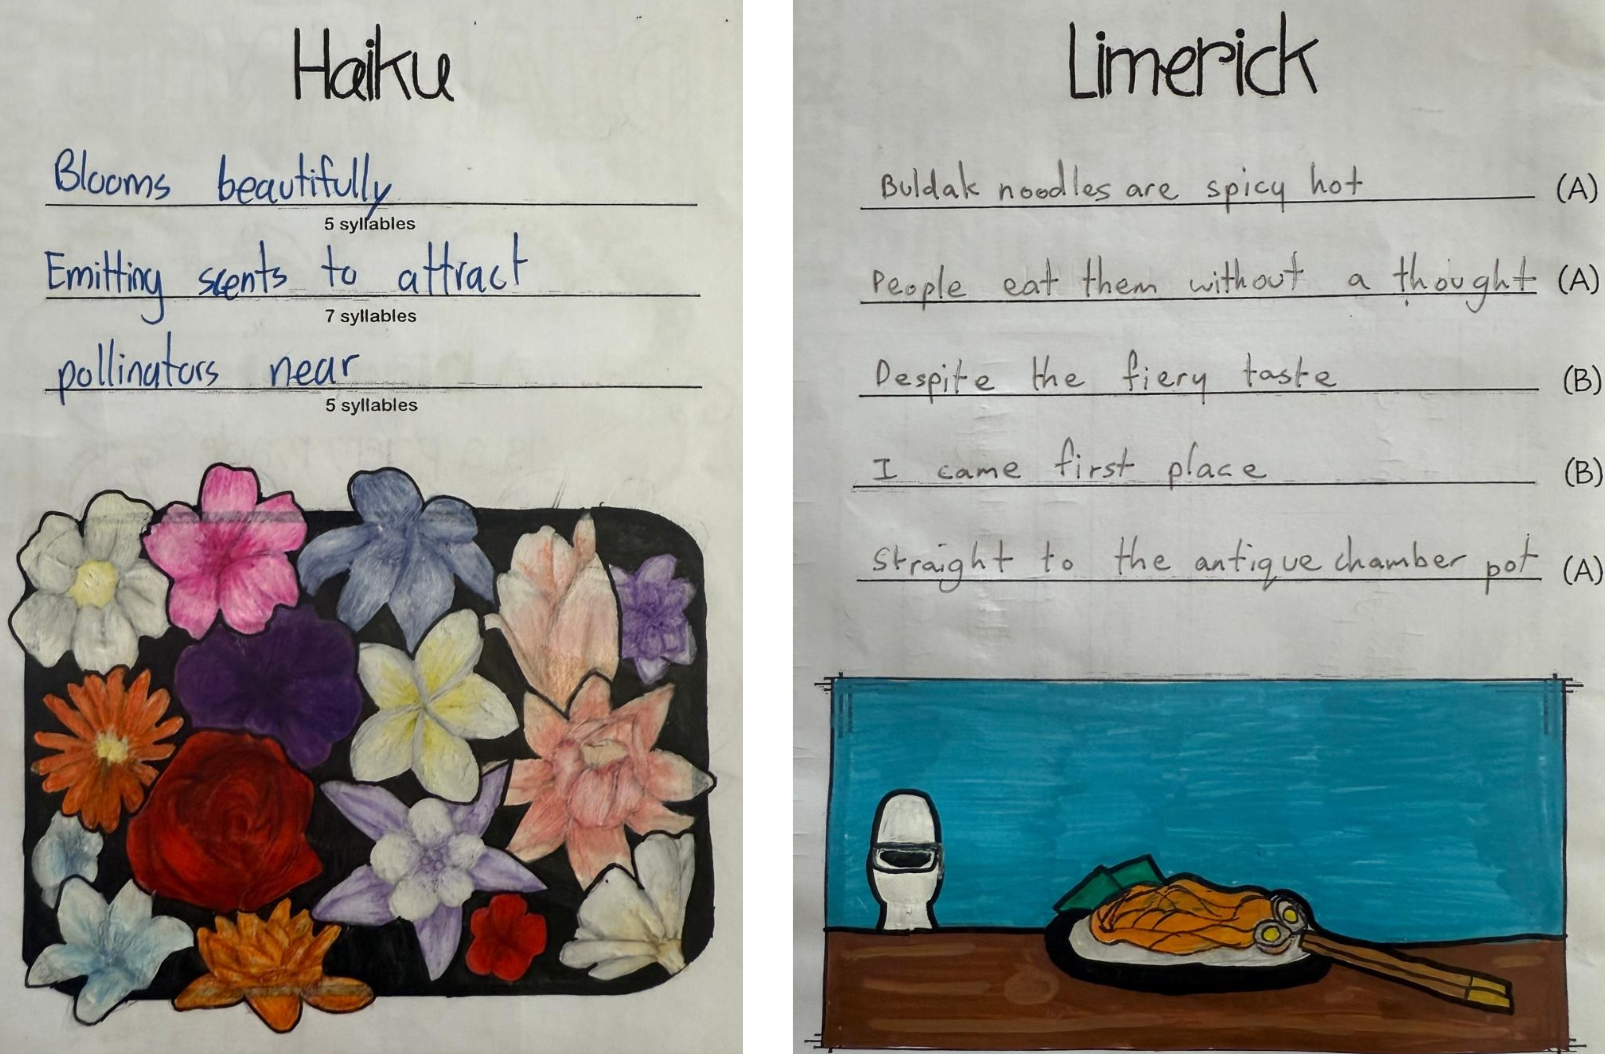 Haiku
Blooms beautifully
5 syllables
Emitting scents to attract
7 syllables
pollinators near
5 syllables
Limerick
Buldak noodles are spicy hot (A)
People eat them without a thought (A)
Despite the fiery taste (B)
I came first place (B)
Straight to the antique chamber pot (A)